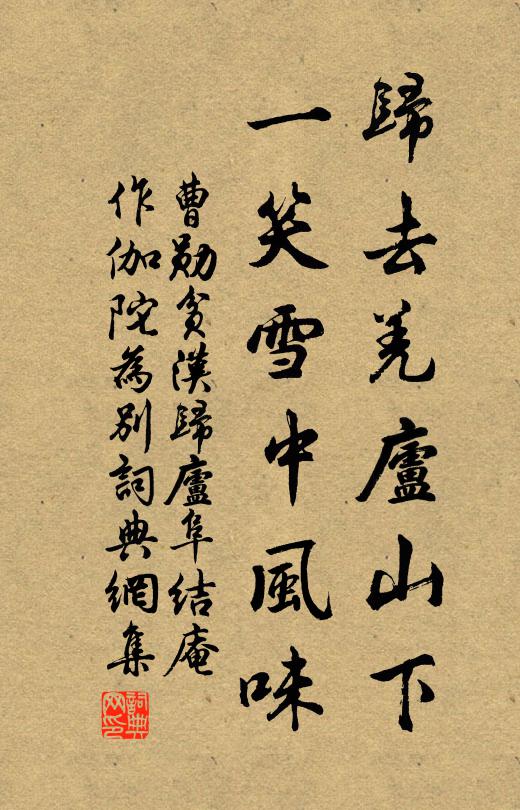 歸去羌廬山下
一笑雪中風味
曹勛貧漢歸廬阜結庵
作伽陀為別詞典網集
詞典
网印